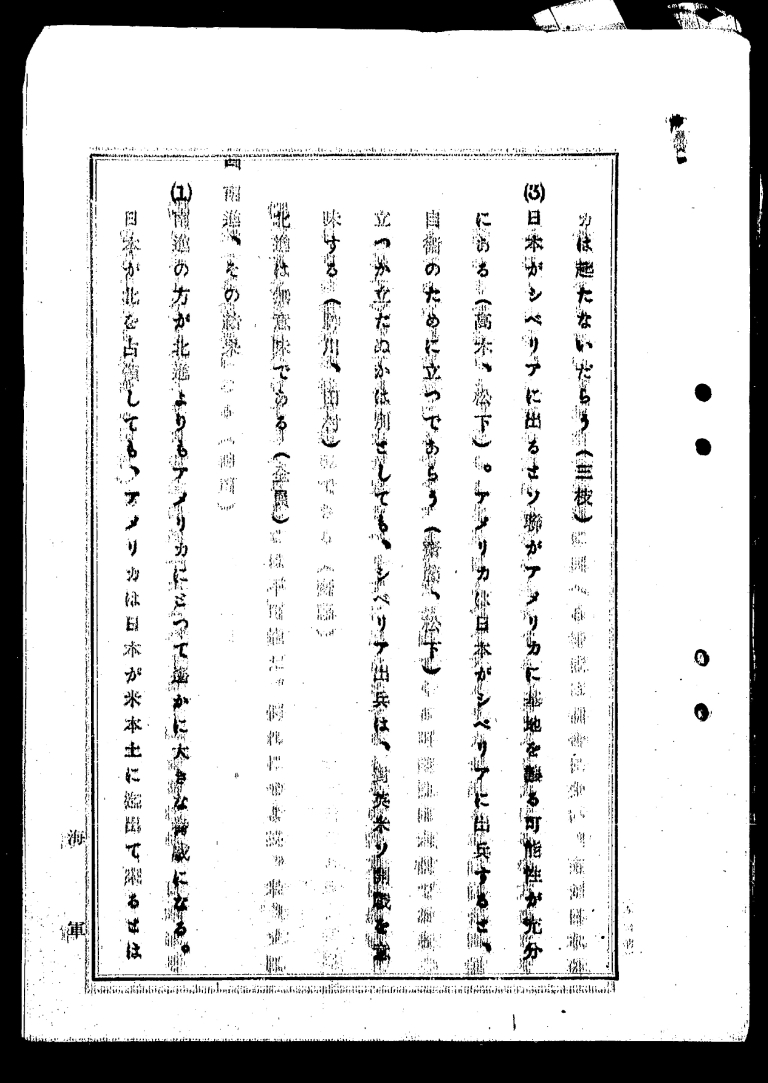 カは起たないだらう（三枝）
⑶日本がシベリアに出るとソ聯がアメリカに基地を譲る可能性が充分
にある（高木、松下）。アメリカは日本がシベリアに出兵すると、
自衛のために立つであらう（斎藤、松下）
立つか立たぬかは別としても、シベリア出兵は、対英米ソ開戦を意
味する（勝川、田村）
北進は無意味である（金原）
南進、その結果
⑴南進の方が北進よりもアメリカにとつて遥かに大きな脅威になる。
日本が北を占領しても、アメリカは日本が米本土に進出て来るとは
海軍